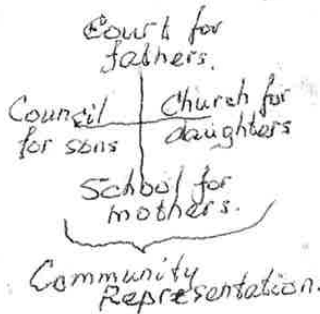 Court for
fathers.
Council
for sons
Church for
daughters
School for
mothers.
Community
Representation.